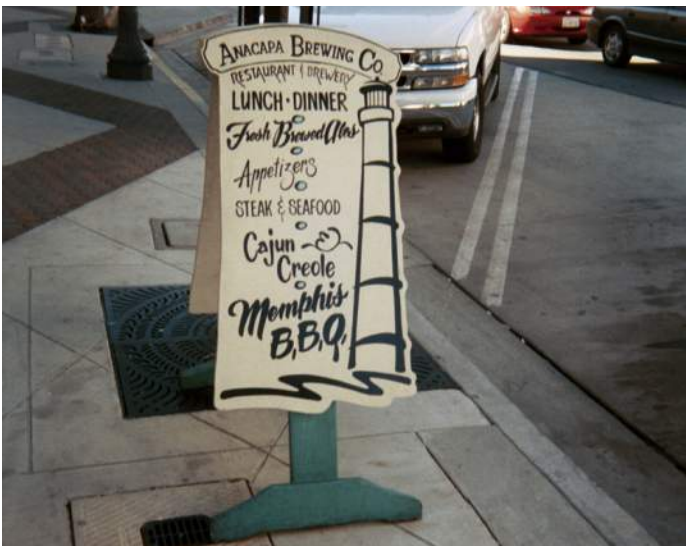 ANACAPA BREWING CO.
RESTAURANT & BREWERY
LUNCH • DINNER
Fresh Brewed Ales
Appetizers
STEAK & SEAFOOD
Cajun
Creole
Memphis
B.B.Q.